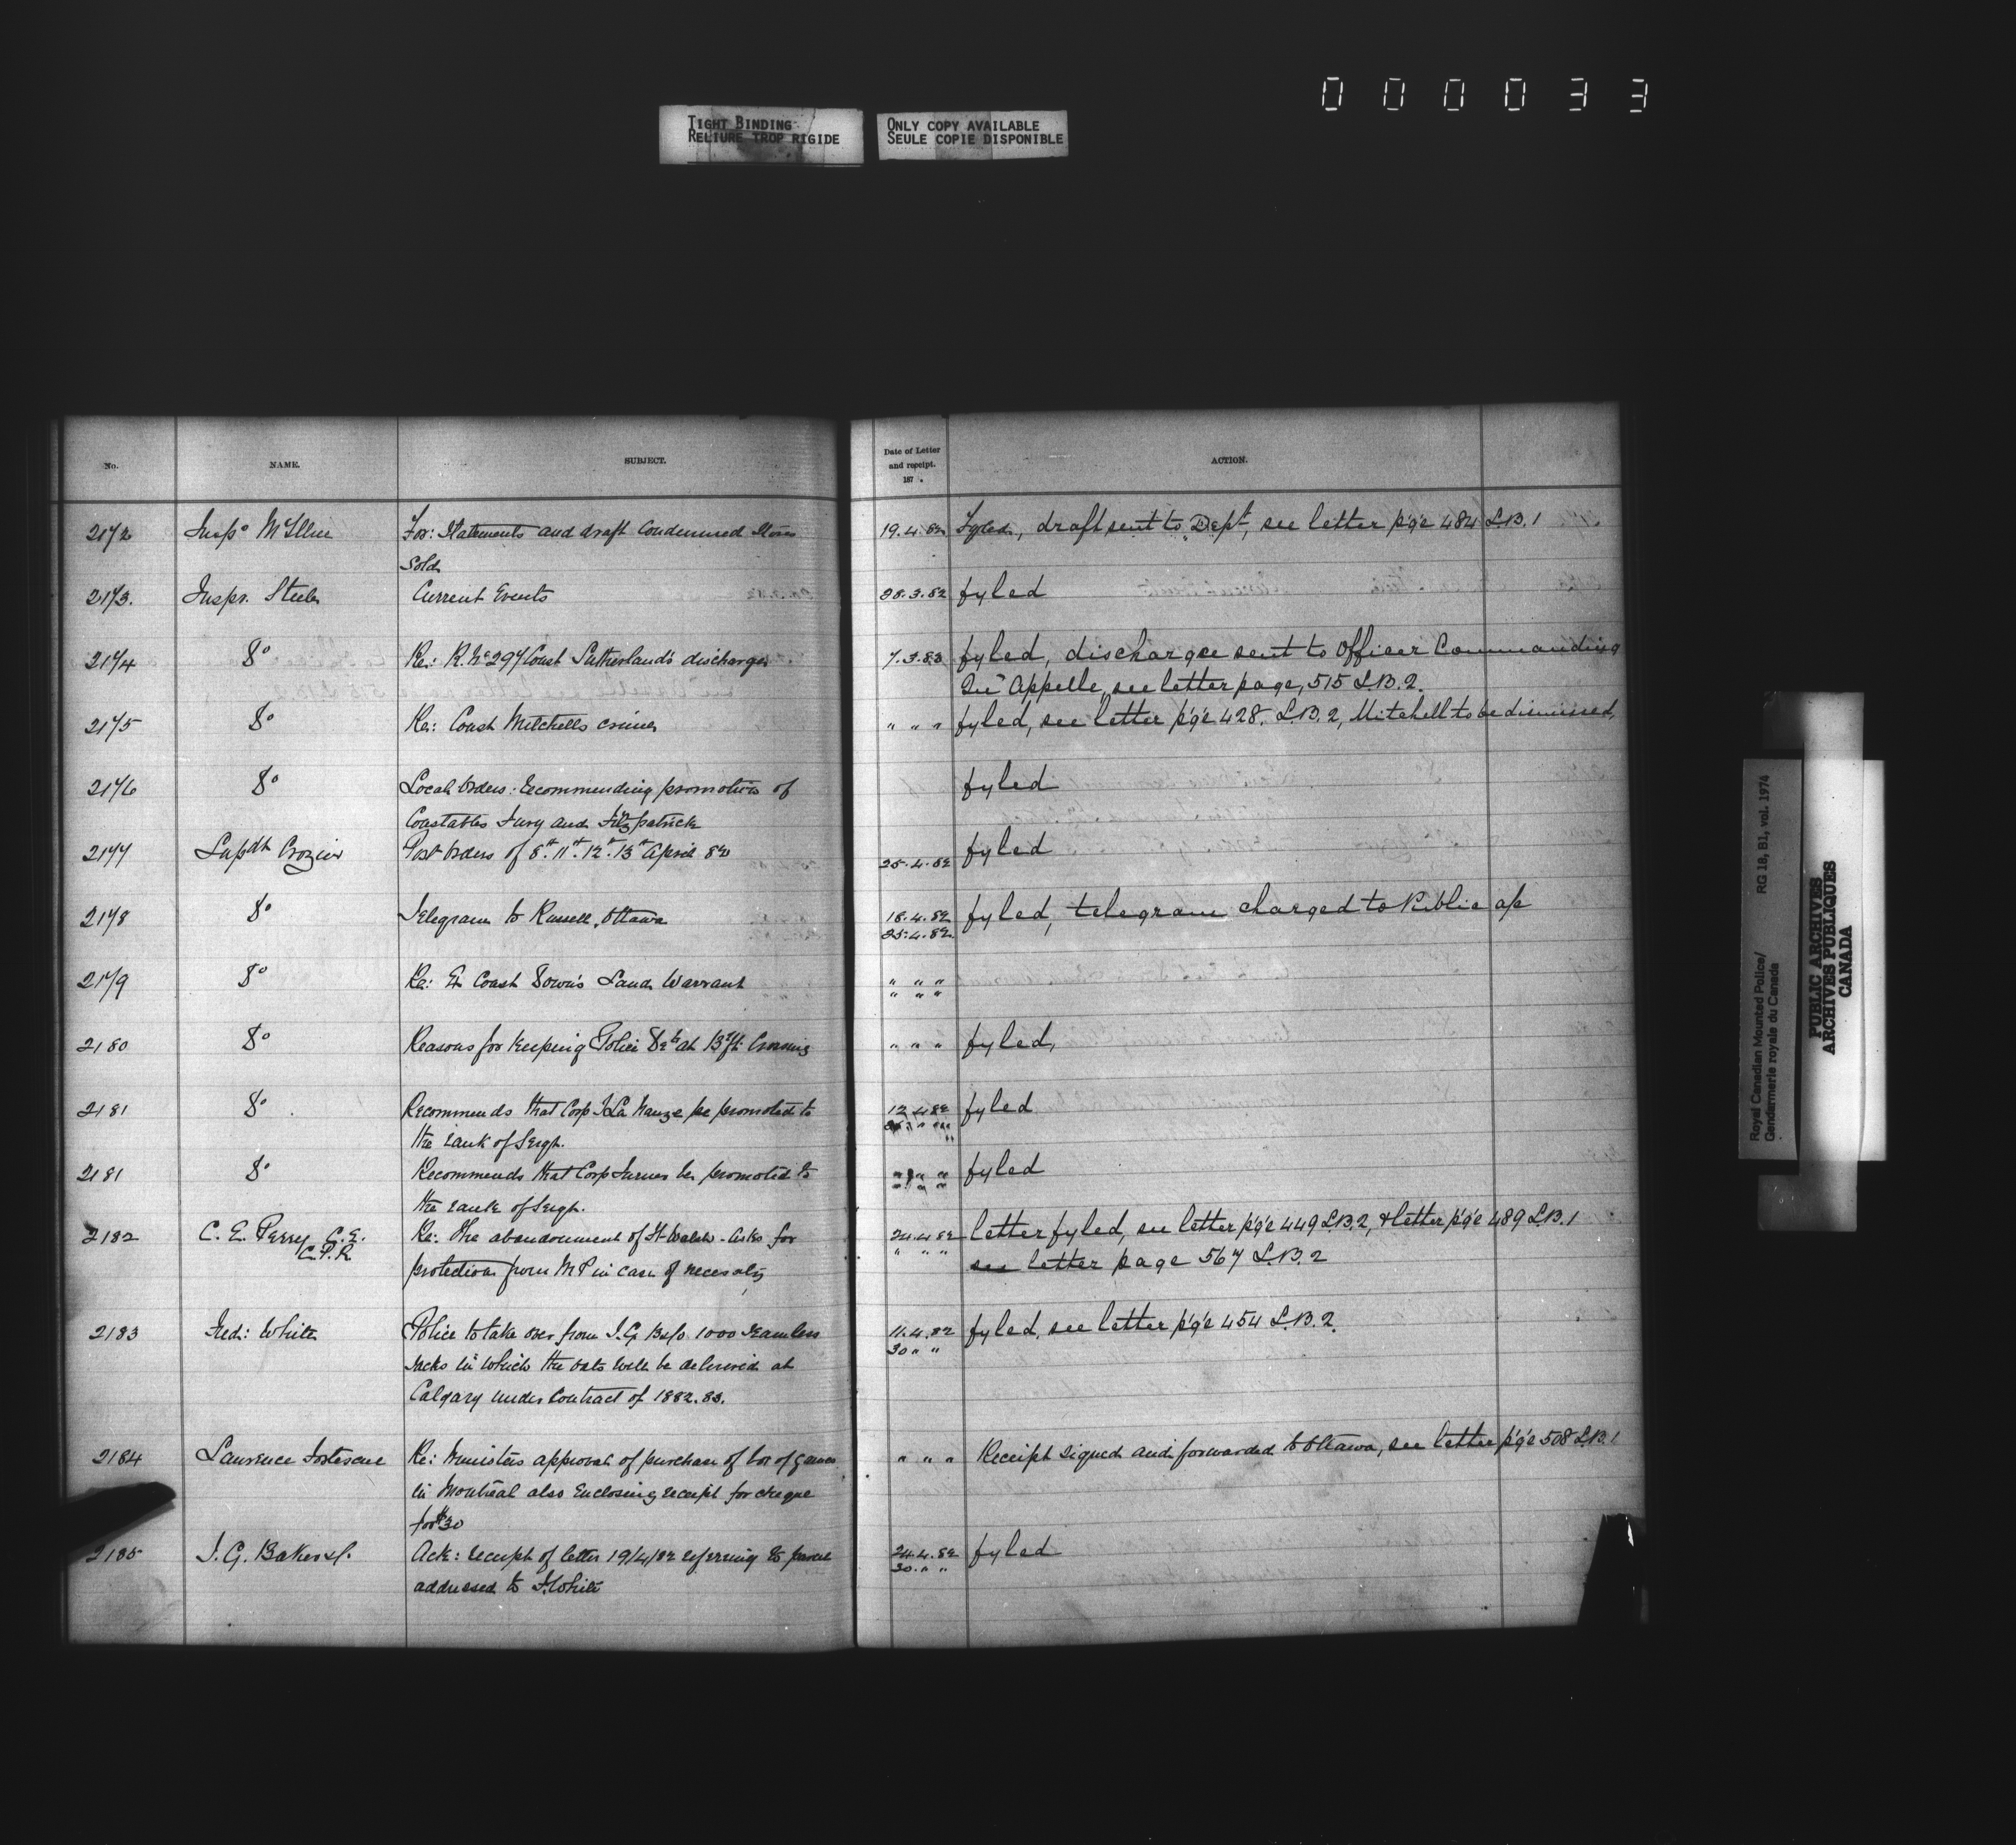 000033
TIGHT BINDING
RELIURE TROP RIGIDE
ONLY COPY AVAILABLE
SEULE COPIE DISPONIBLE
No. NAME. SUBJECT. Date of Letter and receipt. 187 . ACTION.
2172 Insp. McIllree For: Statements and draft Condemned Stores 19.4.82 Fyled, draft sent to Dept, see letter p'g'e 484 L.B. 1
Sold
2173. Inspr. Steele Current Events 28.3.82 fyled
2174 Do Re: R. No 297 Const Sutherland's discharge 7.3.83 fyled, discharge sent to Officer Commanding
Qu'Appelle, see letter page, 515 L.B. 2.
2175 Do Re: Const Mitchells crimes " " " fyled, see letter p'g'e 428. L.B. 2, Mitchell to be dismissed,
2176 Do Local Orders: recommending promotion of fyled
Constables Fury and Fitzpatrick
2177 Supdt Crozier Post Orders of 8th. 11th. 12th. 13th April 82 25.4.82 fyled
2178 Do Telegram to Russell, Ottawa 18.4.82 fyled, telegram charged to Public a/c
25.4.82.
2179 Do Re: Ex Const Down's Land Warrant " " "
" " "
2180 Do Reasons for keeping Police at Crossing " " " fyled,
2181 Do Recommends that Corp La Nauze be promoted to 12.4.82 fyled
the rank of Sergt.
2181 Do Recommends that Corp Turner be promoted to " " " fyled
the rank of Sergt.
2182 C. E. Perry C.E. Re: The abandonment of Ft Walsh - asks for 24.4.82 letter fyled, see letter p'g'e 449 L.B. 2, & letter p'g'e 489 L.B. 1
C.P.R protection from M P in case of necessity " " " see letter page 567 L.B. 2
2183 Fred: White Police to take over from I.G. B & Co. 1000 seamless 11.4.82 fyled, see letter p'g'e 454 L.B. 2.
sacks in which the oats will be delivered at 30 " "
Calgary under Contract of 1882.83.
2184 Laurence Fortescue Re: Ministers approval of purchase of box of games " " " Receipt signed and forwarded to Ottawa, see letter p'g'e 508 L.B. 1
in Montreal also Enclosing receipt for cheque
for $30
2185 I. G. Baker & Co. Ack: receipt of letter 19/4/82 referring to parcel 24.4.82 fyled
addressed to F. White 30. " "
Royal Canadian Mounted Police/ RG 18, B1, vol. 1974
Gendarmerie royale du Canada
PUBLIC ARCHIVES
ARCHIVES PUBLIQUES
CANADA